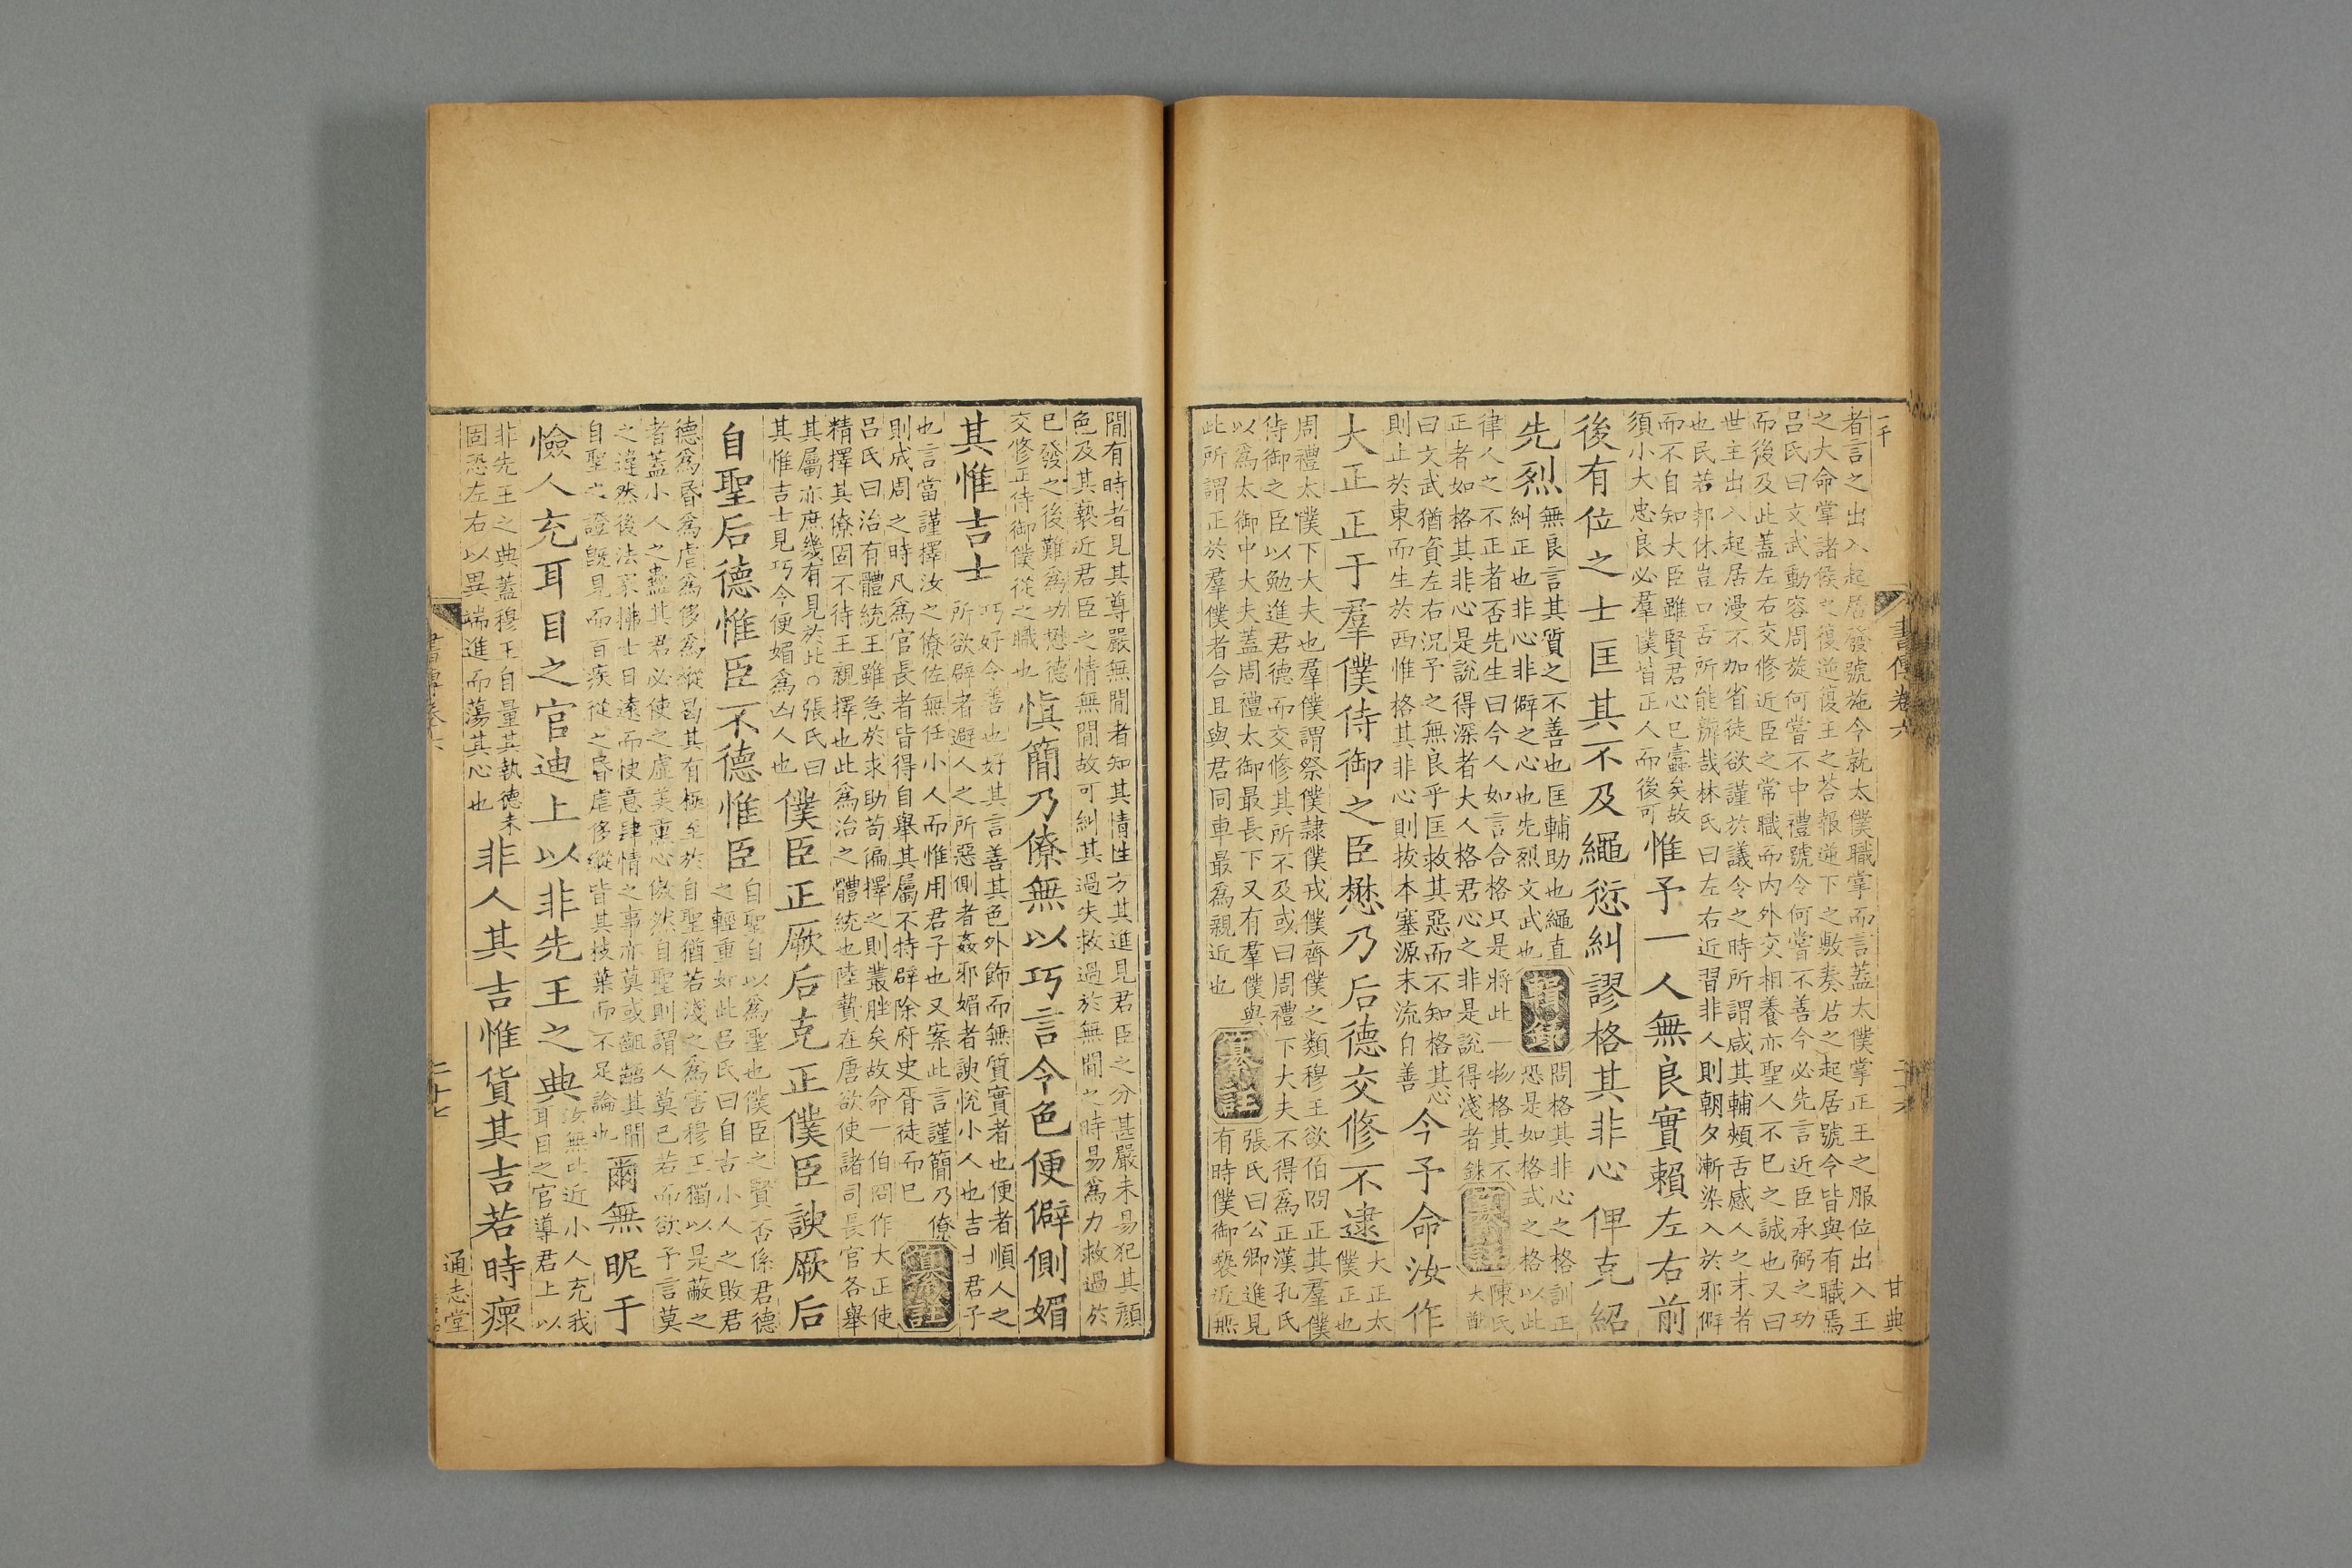 者言之出入起居發號施令就太僕職掌而言蓋太僕掌正王之服位出入王
之大命掌諸侯之復逆復王之荅報逆下之敷奏居之起居號令皆與有職焉
呂氏曰文武動容周旋何嘗不中禮號令何嘗不善今必先言近臣承弼之功
而後及此蓋左右交修近臣之常職而内外交相養亦聖人不已之誠也又曰
世主出入起居漫不加省徒欲謹於議令之時所謂咸其輔頰舌感人之末者
也民若邦休豈口舌所能辦哉林氏曰左右近習非人則朝夕漸染入於邪僻
而不自知大臣雖賢君心已蠹矣故
須小大忠良必羣僕皆正人而後可
惟予一人無良實賴左右前
後有位之士匡其不及繩愆糾謬格其非心俾克紹
先烈
無良言其質之不善也匡輔助也繩直
糾正也非心非僻之心也先烈文武也
輯錄
問格其非心之格訓正
恐是如格式之格以此
律人之不正者否先生曰今人如言合格只是將此一物格其不
正者如格其非心是說得深者大人格君心之非是說得淺者銖
纂註
陳氏
大猷
曰文武猶資左右況予之無良乎匡救其惡而不知格其心
則止於東而生於西惟格其非心則拔本塞源末流自善
今予命汝作
大正正于羣僕侍御之臣懋乃后德交修不逮
大正太
僕正也
周禮太僕下大夫也羣僕謂祭僕隸僕戎僕齊僕之類穆王欲伯冏正其羣僕
侍御之臣以勉進君德而交修其所不及或曰周禮下大夫不得爲正漢孔氏
以爲太御中大夫蓋周禮太御最長下又有羣僕與
此所謂正於羣僕者合且與君同車最爲親近也
纂註
張氏曰公卿進見
有時僕御褻近無
書傳卷六
甘典
閒有時者見其尊嚴無閒者知其情性方其進見君臣之分甚嚴未易犯其顔
色及其褻近君臣之情無閒故可糾其過失救過於無閒之時易爲力救過於
已發之後難爲功懋德
交修正侍御僕從之職也
愼簡乃僚無以巧言令色便僻側媚
其惟吉士
巧好令善也好其言善其色外飾而無質實者也便者順人之
所欲辟者避人之所惡側者姦邪媚者諛悅小人也吉士君子
也言當謹擇汝之僚佐無任小人而惟用君子也又案此言謹簡乃僚
則成周之時凡爲官長者皆得自舉其屬不特辟除府史胥徒而已
纂註
呂氏曰治有體統王雖急於求助苟徧擇之則叢脞矣故命一伯冏作大正使
精擇其僚固不待王親擇也此爲治之體統也陸贄在唐欲使諸司長官各舉
其屬亦庶幾有見於此○張氏曰
其惟吉士見巧令便媚爲凶人也
僕臣正厥后克正僕臣諛厥后
自聖后德惟臣不德惟臣
自聖自以爲聖也僕臣之賢否係君德
之輕重如此呂氏曰自古小人之敗君
德爲昏爲虐爲侈爲縱曷其有極至於自聖猶若淺之爲害穆王獨以是蔽之
者蓋小人之蠱其君必使之虛美熏心傲然自聖則謂人莫己若而欲予言莫
之違然後法家拂士日遠而快意肆情之事亦莫或齟齬其閒
自聖之證旣見而百疾從之昏虐侈縱皆其枝葉而不足論也
爾無昵于
憸人充耳目之官迪上以非先王之典
汝無比近小人充我
耳目之官導君上以
非先王之典蓋穆王自量其執德未
固恐左右以異端進而蕩其心也
非人其吉惟貨其吉若時瘝
書傳卷六
二十七
通志堂